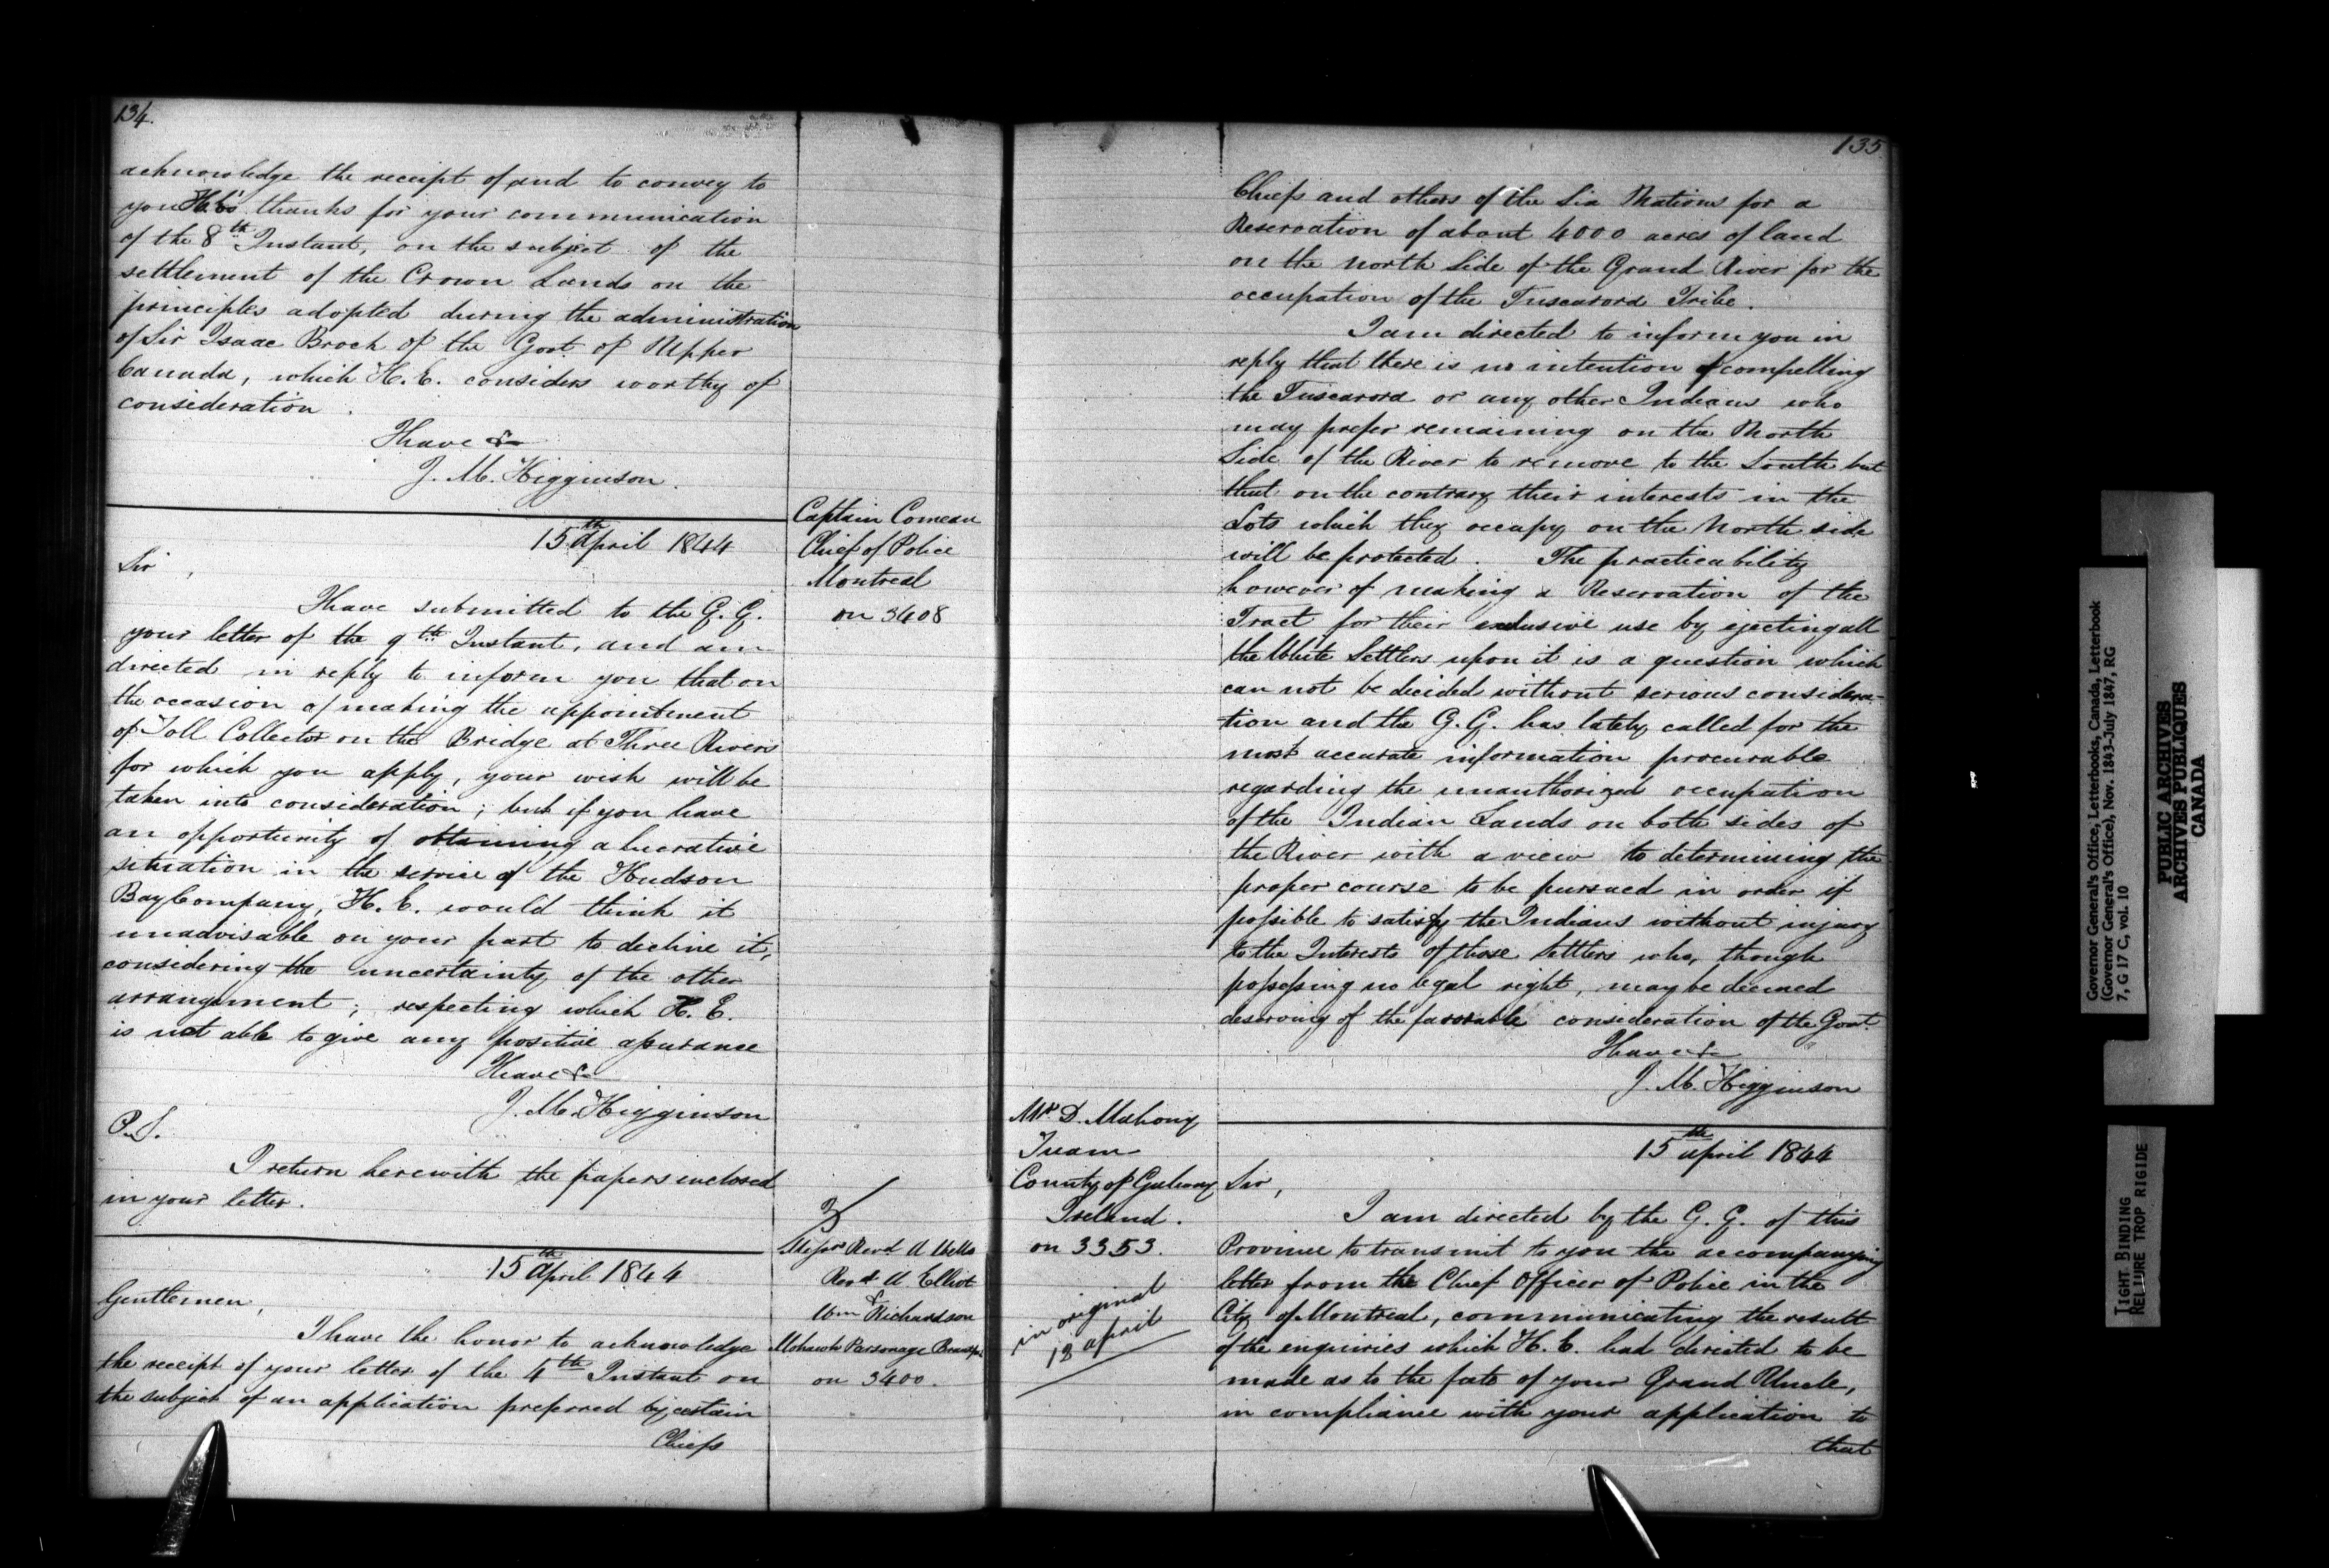 134.
acknowledge the receipt of and to convey to
you H.E.'s thanks for your communication
of the 8th Instant, on the subject of the
settlement of the Crown Lands on the
principles adopted during the administration
of Sir Isaac Brock of the Govt of Upper
Canada, which H.E. considers worthy of
consideration.
I have &c
J. M. Higginson.
Captain Comeau
Chief of Police
Montreal
on 3408
15th April 1844
Sir,
I have submitted to the G. G.
your letter of the 9th Instant, and am
directed in reply to inform you that on
the occasion of making the appointment
of Toll Collector on the Bridge at Three Rivers
for which you apply, your wish will be
taken into consideration; but if you have
an opportunity of obtaining a lucrative
situation in the service of the Hudson
Bay Company, H. E. would think it
unadvisable on your part to decline it,
considering the uncertainty of the other
arrangement; respecting which H. E.
is not able to give any positive assurance
I have &c
J. M. Higginson
P.S.
I return herewith the papers enclosed
in your letter.
Messrs Revd A
Revd A Elliot
& Richardson
Mohawk Parsonage
on 3400.
15th April 1844
Gentlemen,
I have the honor to acknowledge
the receipt of your letter of the 4th Instant on
the subject of an application preferred by certain
Chiefs
135
Chiefs and others of the Six Nations for a
Reservation of about 4000 acres of land
on the North Side of the Grand River for the
occupation of the Tuscarora Tribe.
I am directed to inform you in
reply that there is no intention of compelling
the Tuscarora or any other Indians who
may prefer remaining on the North
Side of the River to remove to the South but
that on the contrary their interests in the
Lots which they occupy on the North side
will be protected. The practicability
however of making a Reservation of the
Tract for their exclusive use by ejecting all
the White Settlers upon it is a question which
can not be decided without serious considera-
tion and the G. G. has lately called for the
most accurate information procurable
regarding the unauthorized occupation
of the Indian Lands on both sides of
the River with a view to determining the
proper course to be pursued in order if
possible to satisfy the Indians without injury
to the Interests of those Settlers who, though
possessing no legal right, may be deemed
deserving of the favorable consideration of the Govt
I have &c
J. M. Higginson
Mr D. Mahony
Tuam
County of Galway
Ireland.
on 3353.
in original
12 April
15th April 1844
Sir,
I am directed by the G. G. of this
Province to transmit to you the accompanying
letter from the Chief Officer of Police in the
City of Montreal, communicating the result
of the enquiries which H. E. had directed to be
made as to the fate of your Grand Uncle,
in compliance with your application to
that
Governor General's Office, Letterbooks, Canada, Letterbook
(Governor General's Office), Nov. 1843-July 1847, RG
7, G 17 C, vol. 10
PUBLIC ARCHIVES
ARCHIVES PUBLIQUES
CANADA
TIGHT BINDING
RELIURE TROP RIGIDE